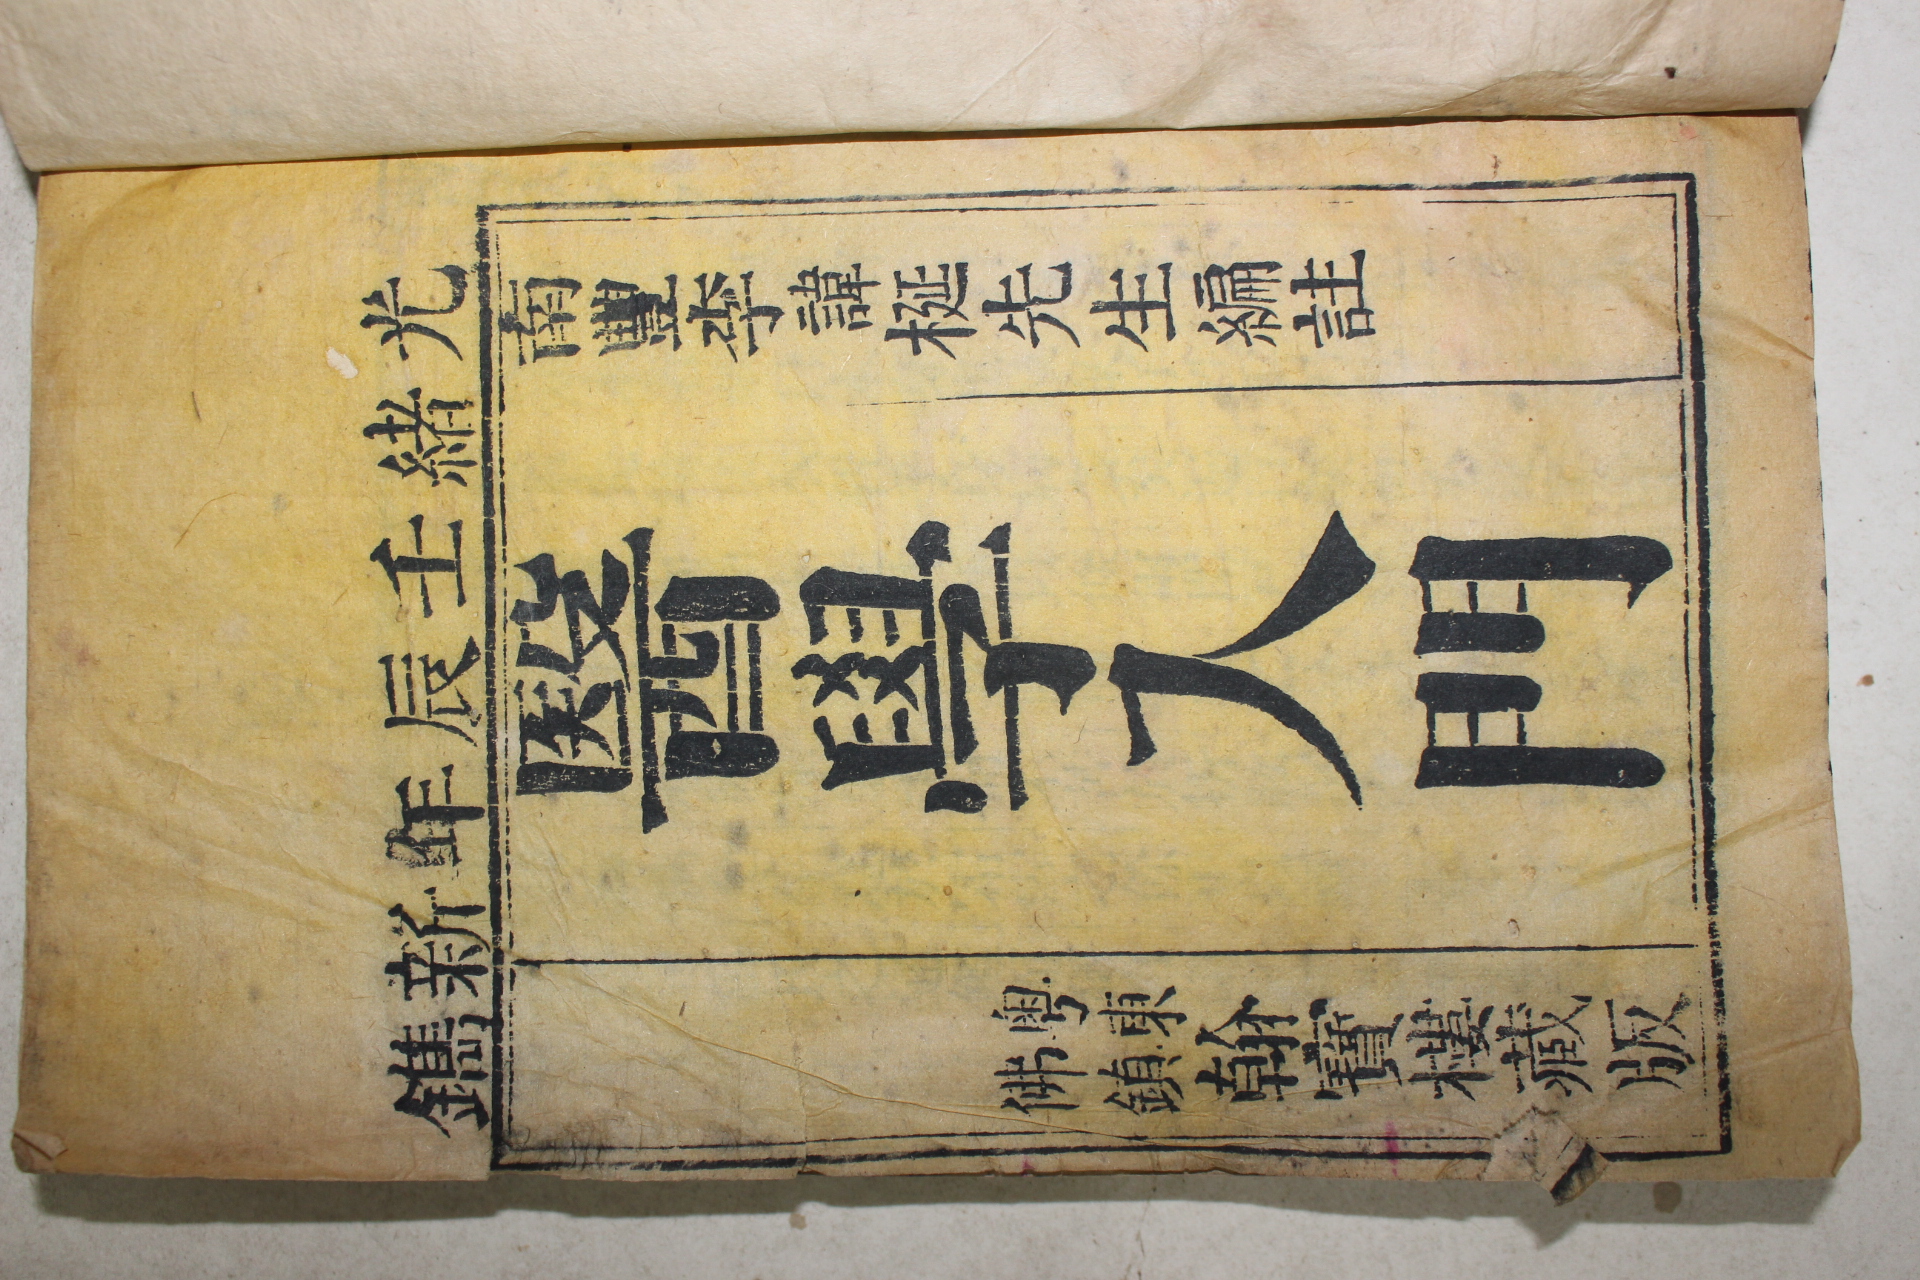 光緒壬辰年新鐫
南豐李諱梴先生編註
醫學入門
粵東
佛鎮
翰寶樓藏版